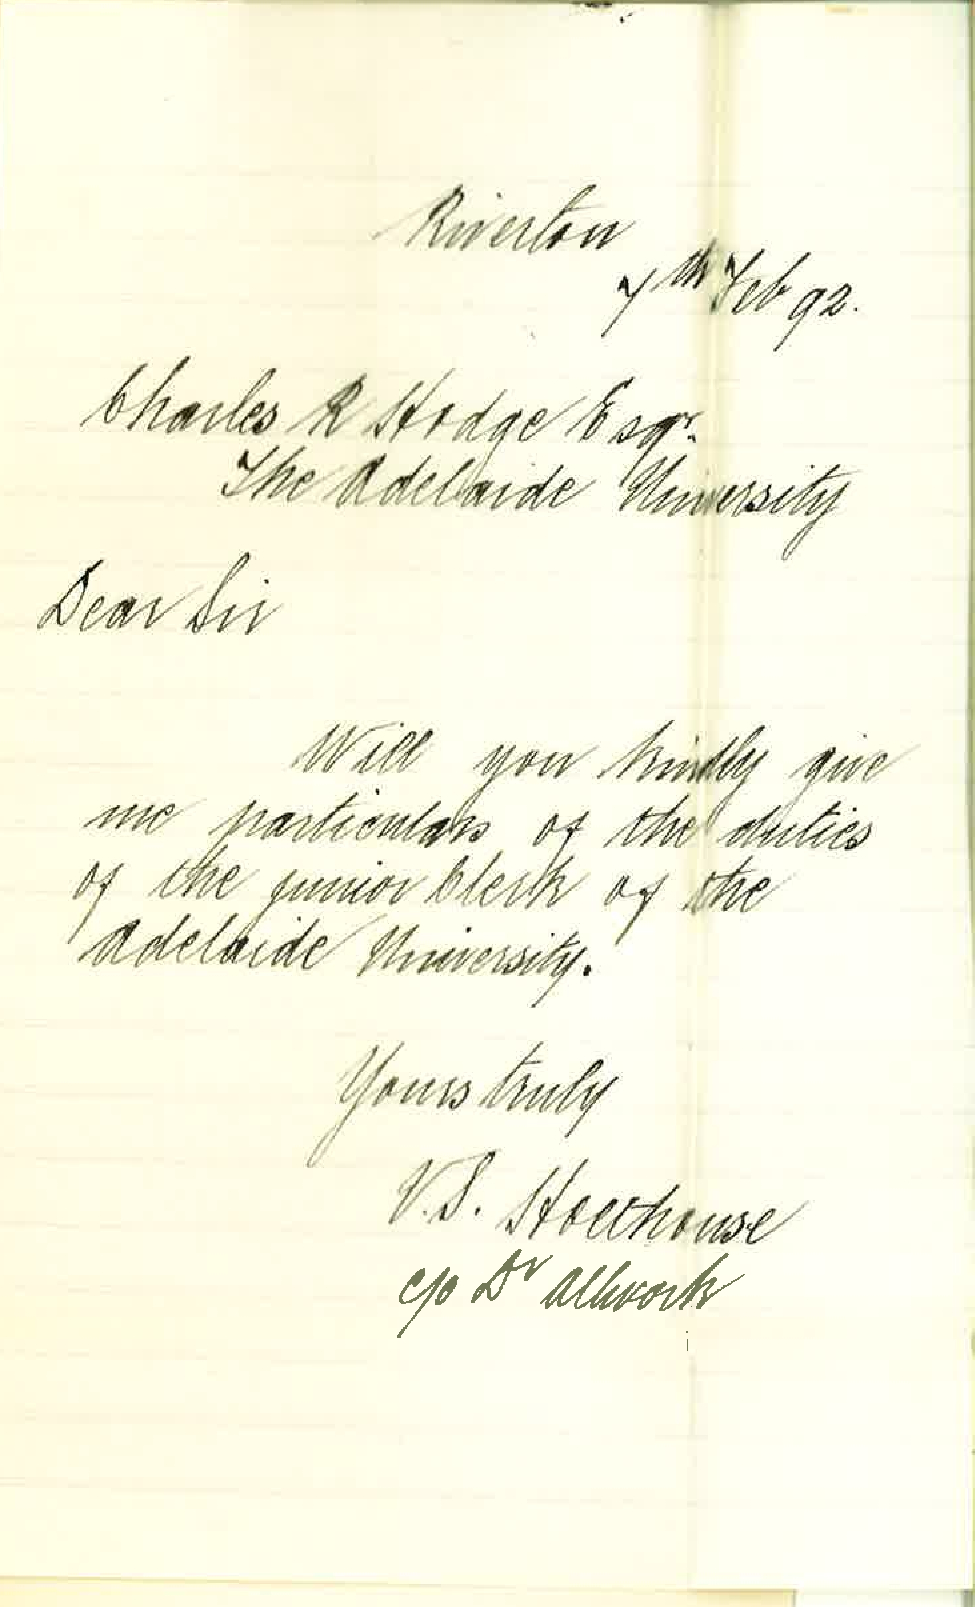 Riverton
7th Feb 92.
Charles R Hodge Esqr.
The Adelaide University
Dear Sir
Will you kindly give
me particulars of the duties
of the junior Clerk of the
Adelaide University.
Yours truly
V.S. Holthouse
c/o Dr Allwork